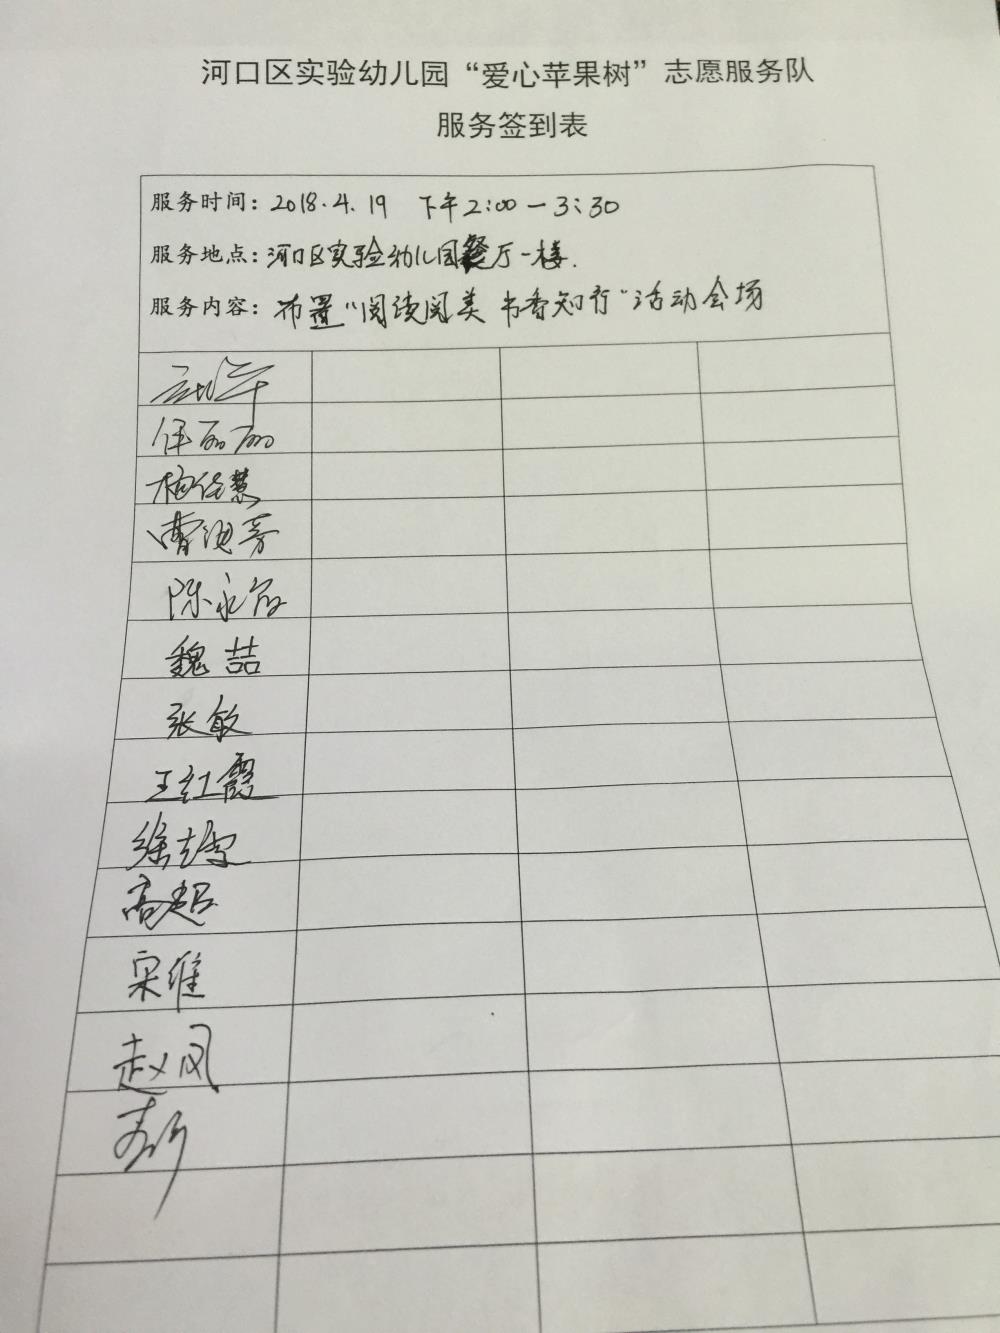 河口区实验幼儿园“爱心苹果树”志愿服务队
服务签到表
服务时间：2018.4.19 下午2:00—3:30
服务地点：河口区实验幼儿园餐厅一楼.
服务内容：布置“阅读阅美 书香知行”活动会场
任丽丽
魏喆
张敏
王红霞
高超
宋维
赵凤